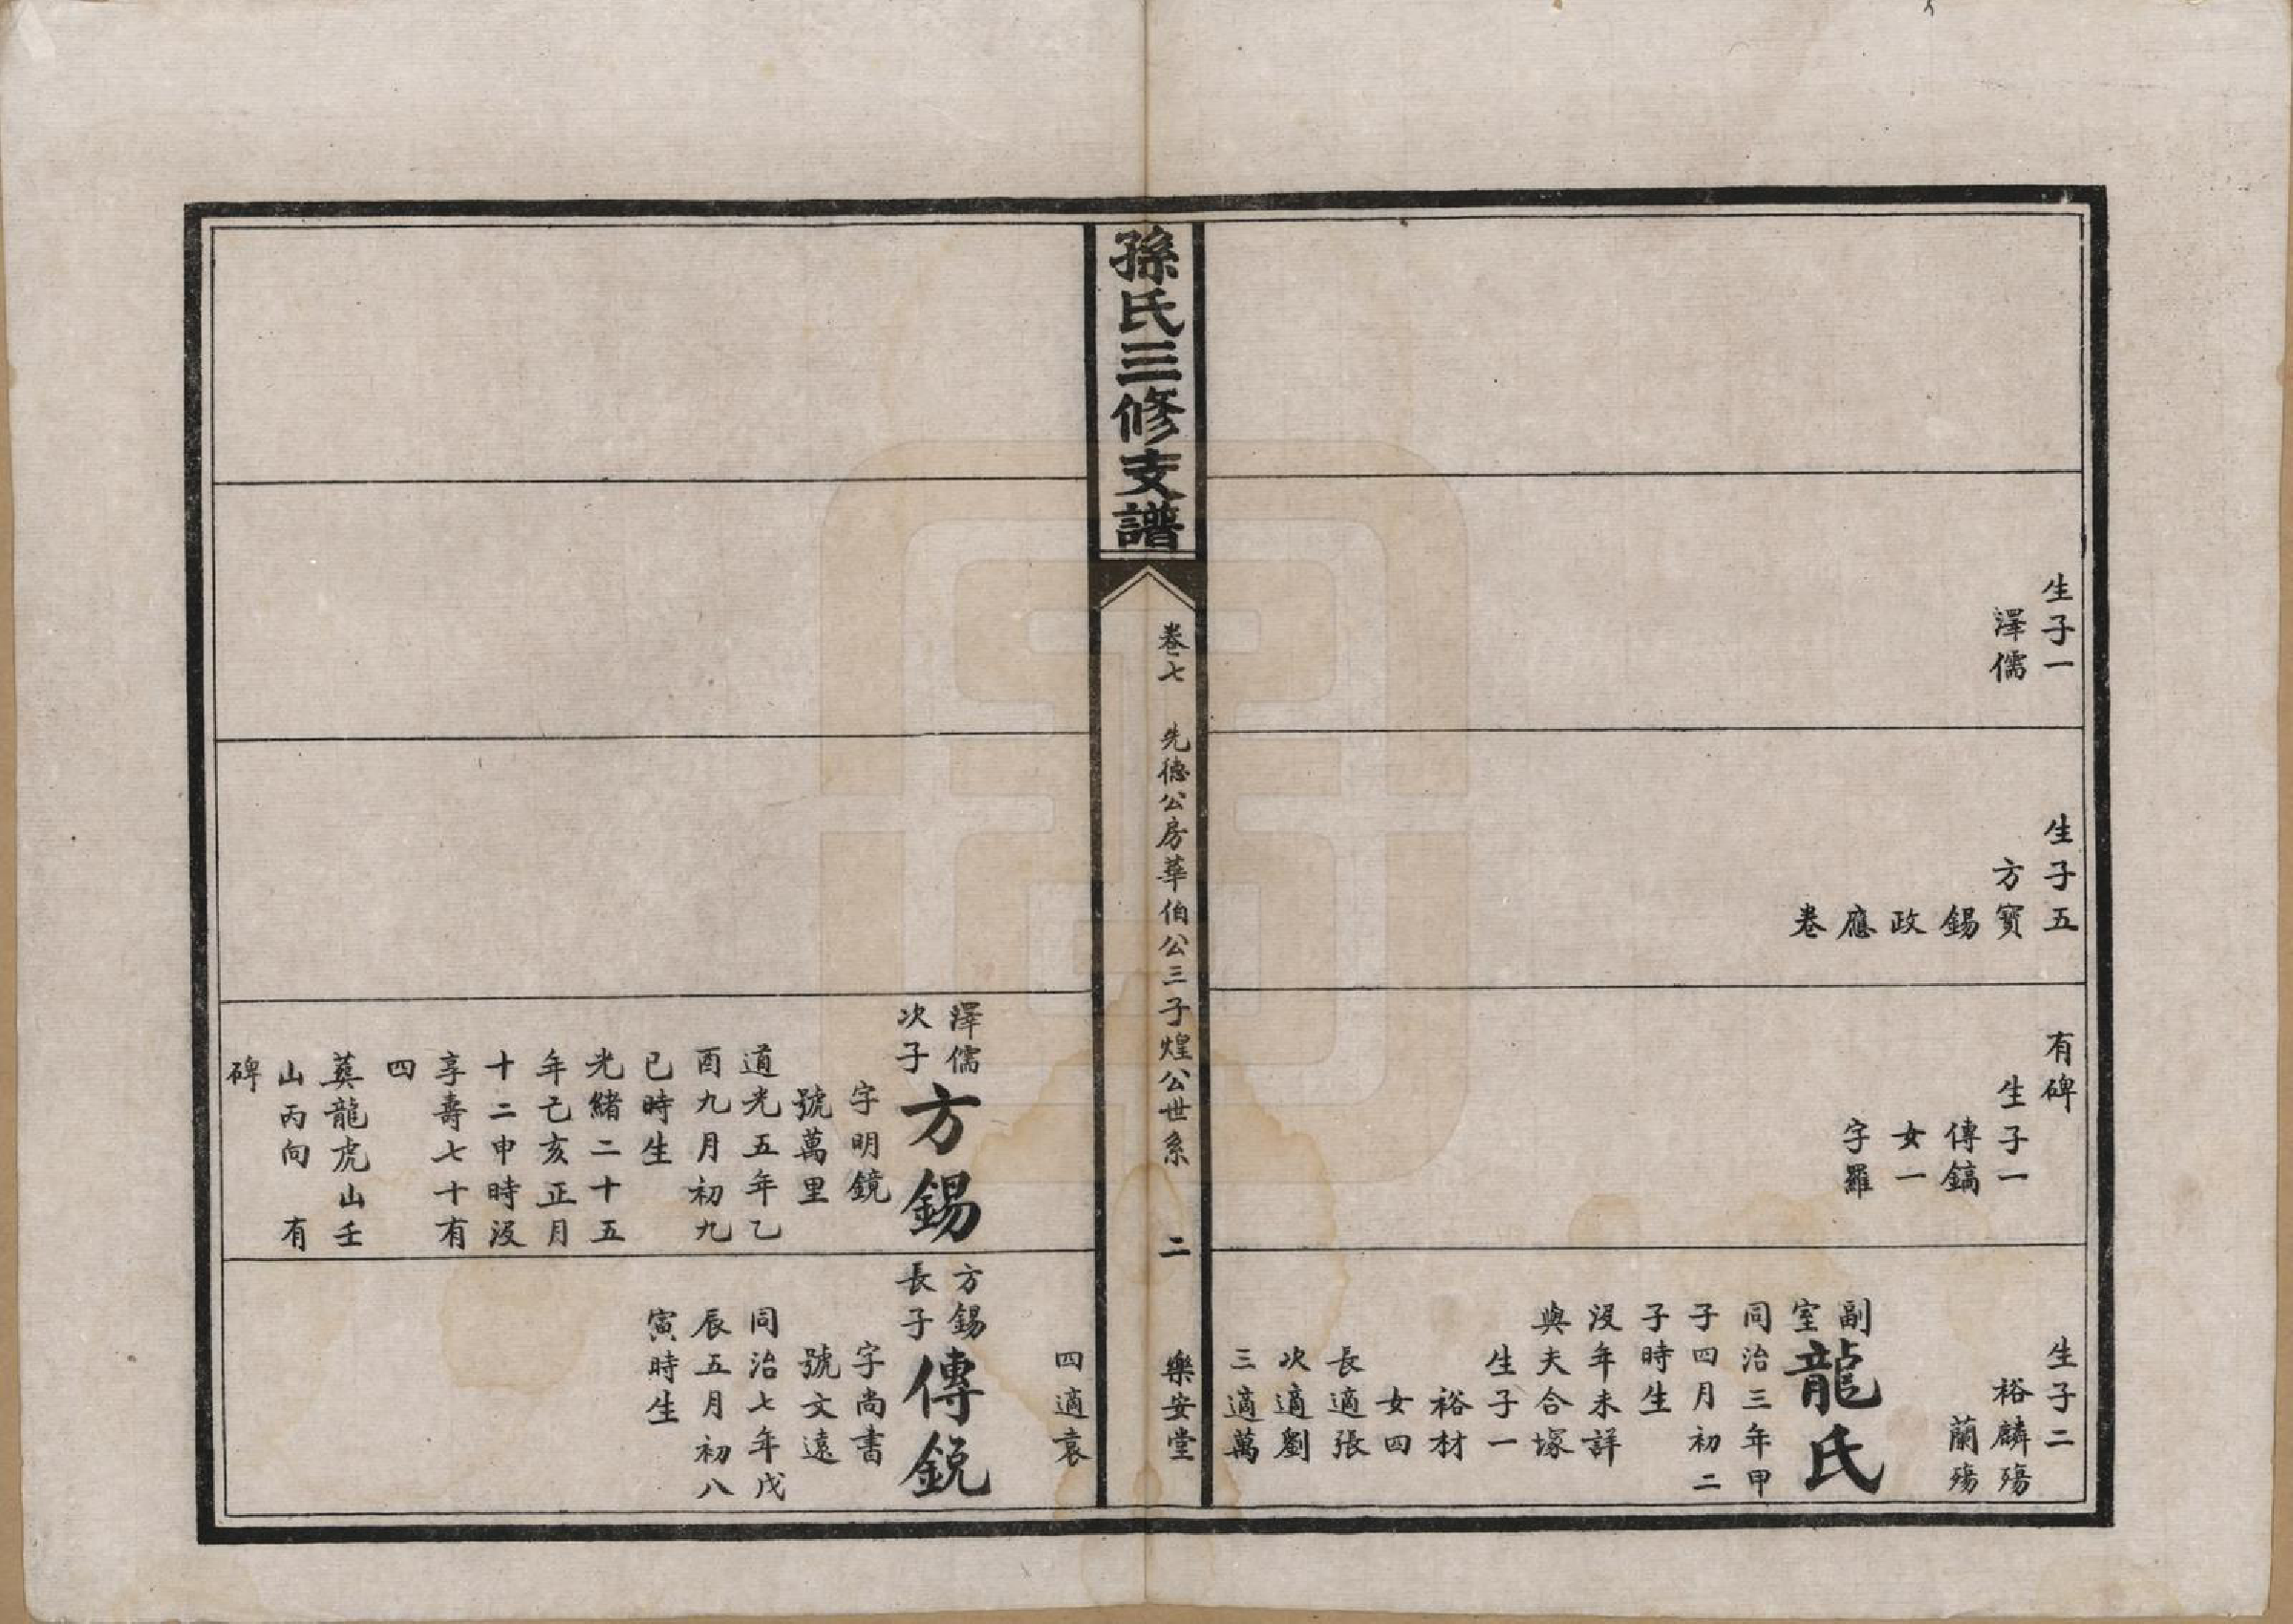 生子一
澤儒
生子五
方寶
錫
政
應
卷
有碑
生子一
傳鎬
女一
字羅
生子二
裕麟殤
蘭殤
副室龍氏
同治三年甲
子四月初二
子時生
沒年未詳
與夫合塚
生子一
裕材
女四
長適張
次適劉
三適萬
孫氏三修支譜
卷七
先德公房華伯公三子煌公世系
二
樂安堂
澤儒次子方錫
字明鏡
號萬里
道光五年乙
酉九月初九
巳時生
光緒二十五
年己亥正月
十二申時沒
享壽七十有
四
葬龍虎山壬
山丙向 有
碑
四適袁
方錫長子傳銳
字尚書
號文遠
同治七年戊
辰五月初八
寅時生